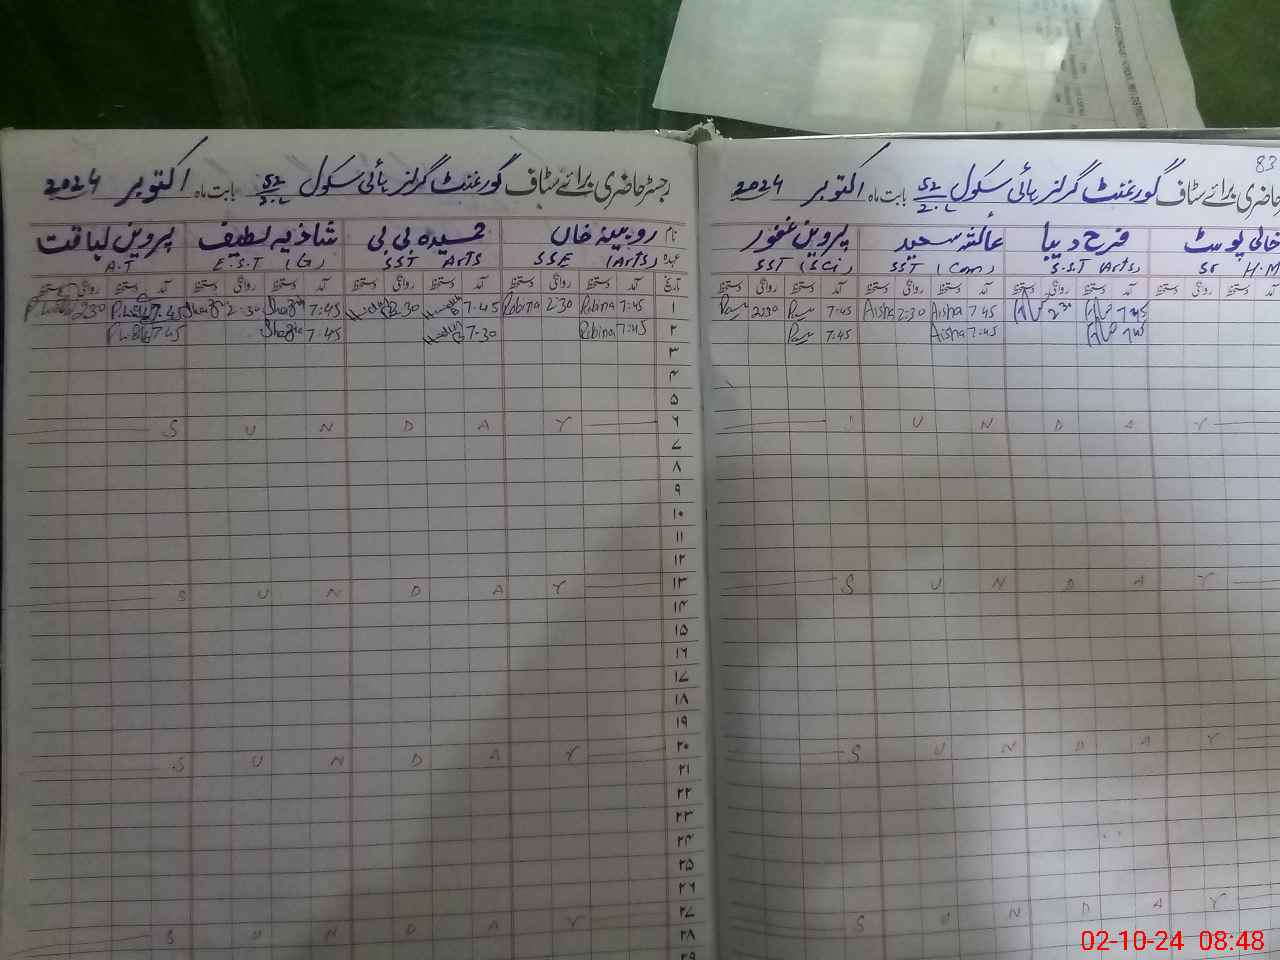 رجسٹر حاضری برائے سٹاف گورنمنٹ گرلز ہائی سکول 52/2.L بابت ماہ اکتوبر 2024
نام روبینہ خاں حمیدہ بی بی شازیہ لطیف پروین لیاقت
عہدہ SSE (Arts) SST Arts E.S.T (G) A.T
تاریخ آمد دستخط روانگی دستخط آمد دستخط روانگی دستخط آمد دستخط روانگی دستخط آمد دستخط روانگی دستخط
۱ 7:45 Robina 2:30 Robina 7:45 2:30 7:45 Shazia 2:30 Shazia 7:45 2:30
۲ 7:45 Robina 7:30 7:45 Shazia 7:45
۳
۴
۵
۶ S U N D A Y
۷
۸
۹
۱۰
۱۱
۱۲
۱۳ S U N D A Y
۱۴
۱۵
۱۶
۱۷
۱۸
۱۹
۲۰ S U N D A Y
۲۱
۲۲
۲۳
۲۴
۲۵
۲۶
۲۷ S U N D A Y
۲۸
۲۹
83
حاضری برائے سٹاف گورنمنٹ گرلز ہائی سکول 52/2.L بابت ماہ اکتوبر 2024
خالی پوسٹ فرح دیبا عائشہ سعید پروین غفور
Sr H.M S.S.T (Arts) SST (Com) SST (Sci)
آمد دستخط روانگی دستخط آمد دستخط روانگی دستخط آمد دستخط روانگی دستخط آمد دستخط روانگی دستخط
7:45 2:30 7:45 Aisha 2:30 Aisha 7:45 2:30
7:45 7:45 Aisha 7:45
S U N D A Y
S U N D A Y
S U N D A Y
S U N D A Y
02-10-24 08:48